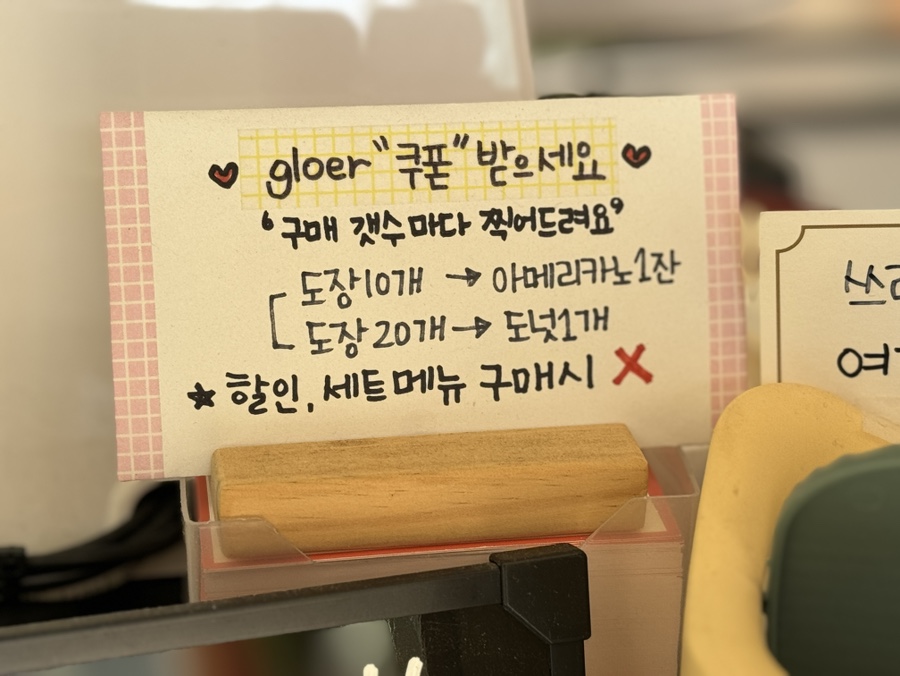 ♥ gloer "쿠폰" 받으세요 ♥
'구매 갯수마다 찍어드려요'
도장10개 → 아메리카노1잔
도장20개 → 도넛1개
★ 할인, 세트메뉴 구매시 X